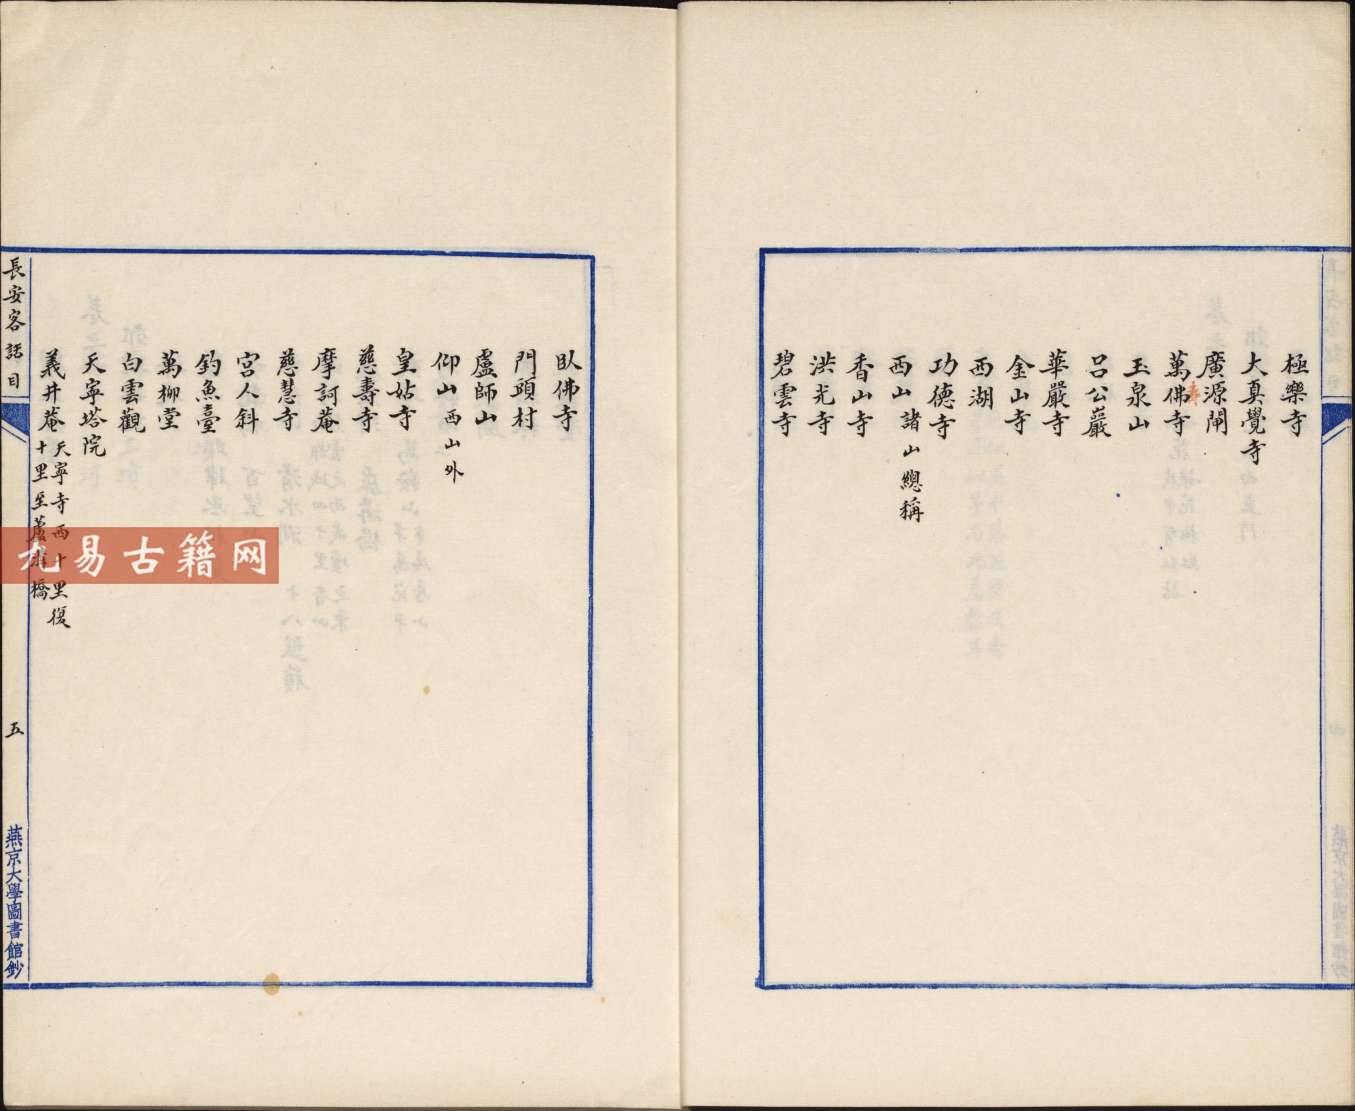 極樂寺
大真覺寺
廣源閘
萬佛寺
壽
玉泉山
呂公巖
華嚴寺
金山寺
西湖
功德寺
西山諸山總稱
香山寺
洪光寺
碧雲寺
臥佛寺
門頭村
盧師山
仰山西山外
皇姑寺
慈壽寺
摩訶菴
慈慧寺
宮人斜
釣魚臺
萬柳堂
白雲觀
天寧塔院
義井菴天寧寺西十里復
十里至蘆溝橋
長安客話目
五
燕京大學圖書館鈔
九易古籍网